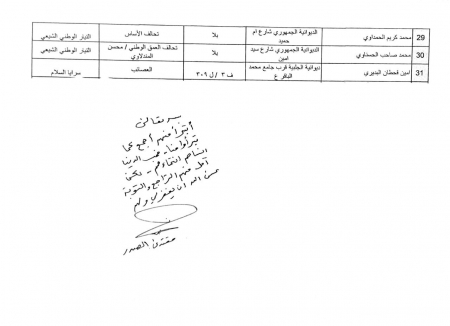 29 محمد كريم الحمداوي الديوانية الجمهوري شارع ام حميد بلا تحالف الأساس التيار الوطني الشيعي
30 محمد صاحب الحسناوي الديوانية الجمهوري شارع سيد امين بلا تحالف العمق الوطني / محسن المندلاوي التيار الوطني الشيعي
31 امين قحطان البديري ديوانية الجلبية قرب جامع محمد الباقر ع ف ٣ / ل ٣٠٩ العصائب سرايا السلام
بسمه تعالى
أتبرأ منهم أجمع كما
تبرأوا منا
انتماءهم
آمل منهم التراجع والتوبة
عسى الله ان يغفر لي ولهم
مقتدى الصدر